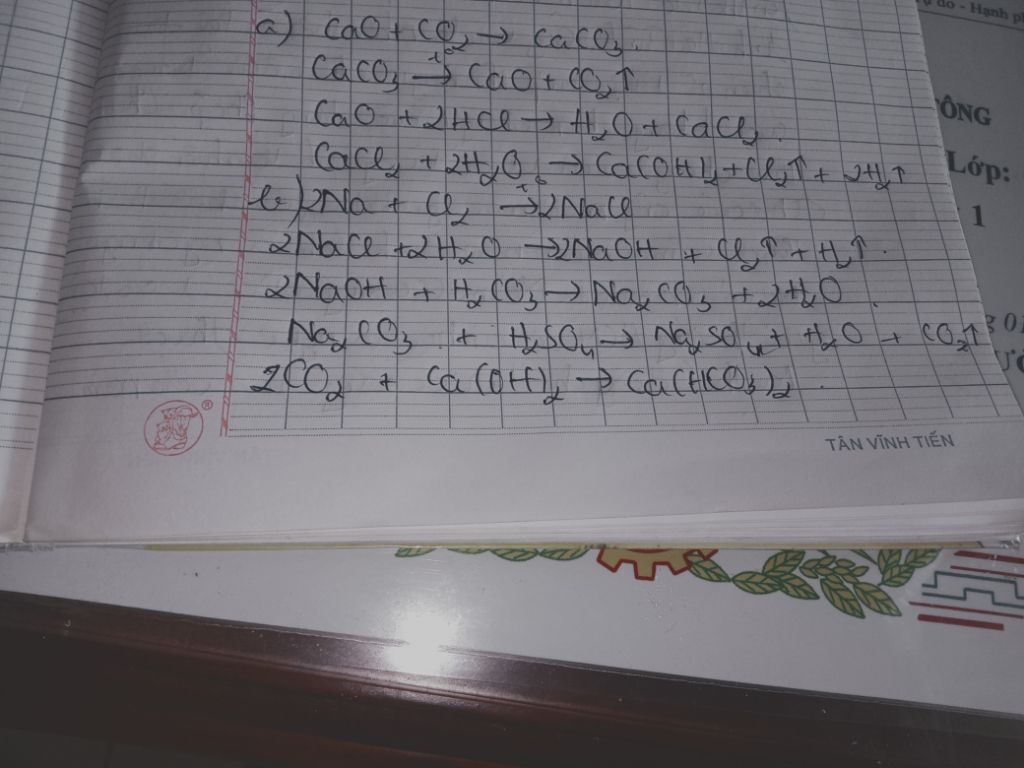 ự do - Hạnh ph
a) CaO + CO₂ → CaCO₃.
CaCO₃ →(t°) CaO + CO₂↑
ÔNG
CaO + 2HCl → H₂O + CaCl₂.
Lớp:
CaCl₂ + 2H₂O → Ca(OH)₂ + Cl₂↑ + 2H₂↑
b) 2Na + Cl₂ →(t°) 2NaCl
1
2NaCl + 2H₂O → 2NaOH + Cl₂↑ + H₂↑.
2NaOH + H₂CO₃ → Na₂CO₃ + 2H₂O.
Na₂CO₃ + H₂SO₄ → Na₂SO₄ + H₂O + CO₂↑
2CO₂ + Ca(OH)₂ → Ca(HCO₃)₂.
®
TÂN VĨNH TIẾN